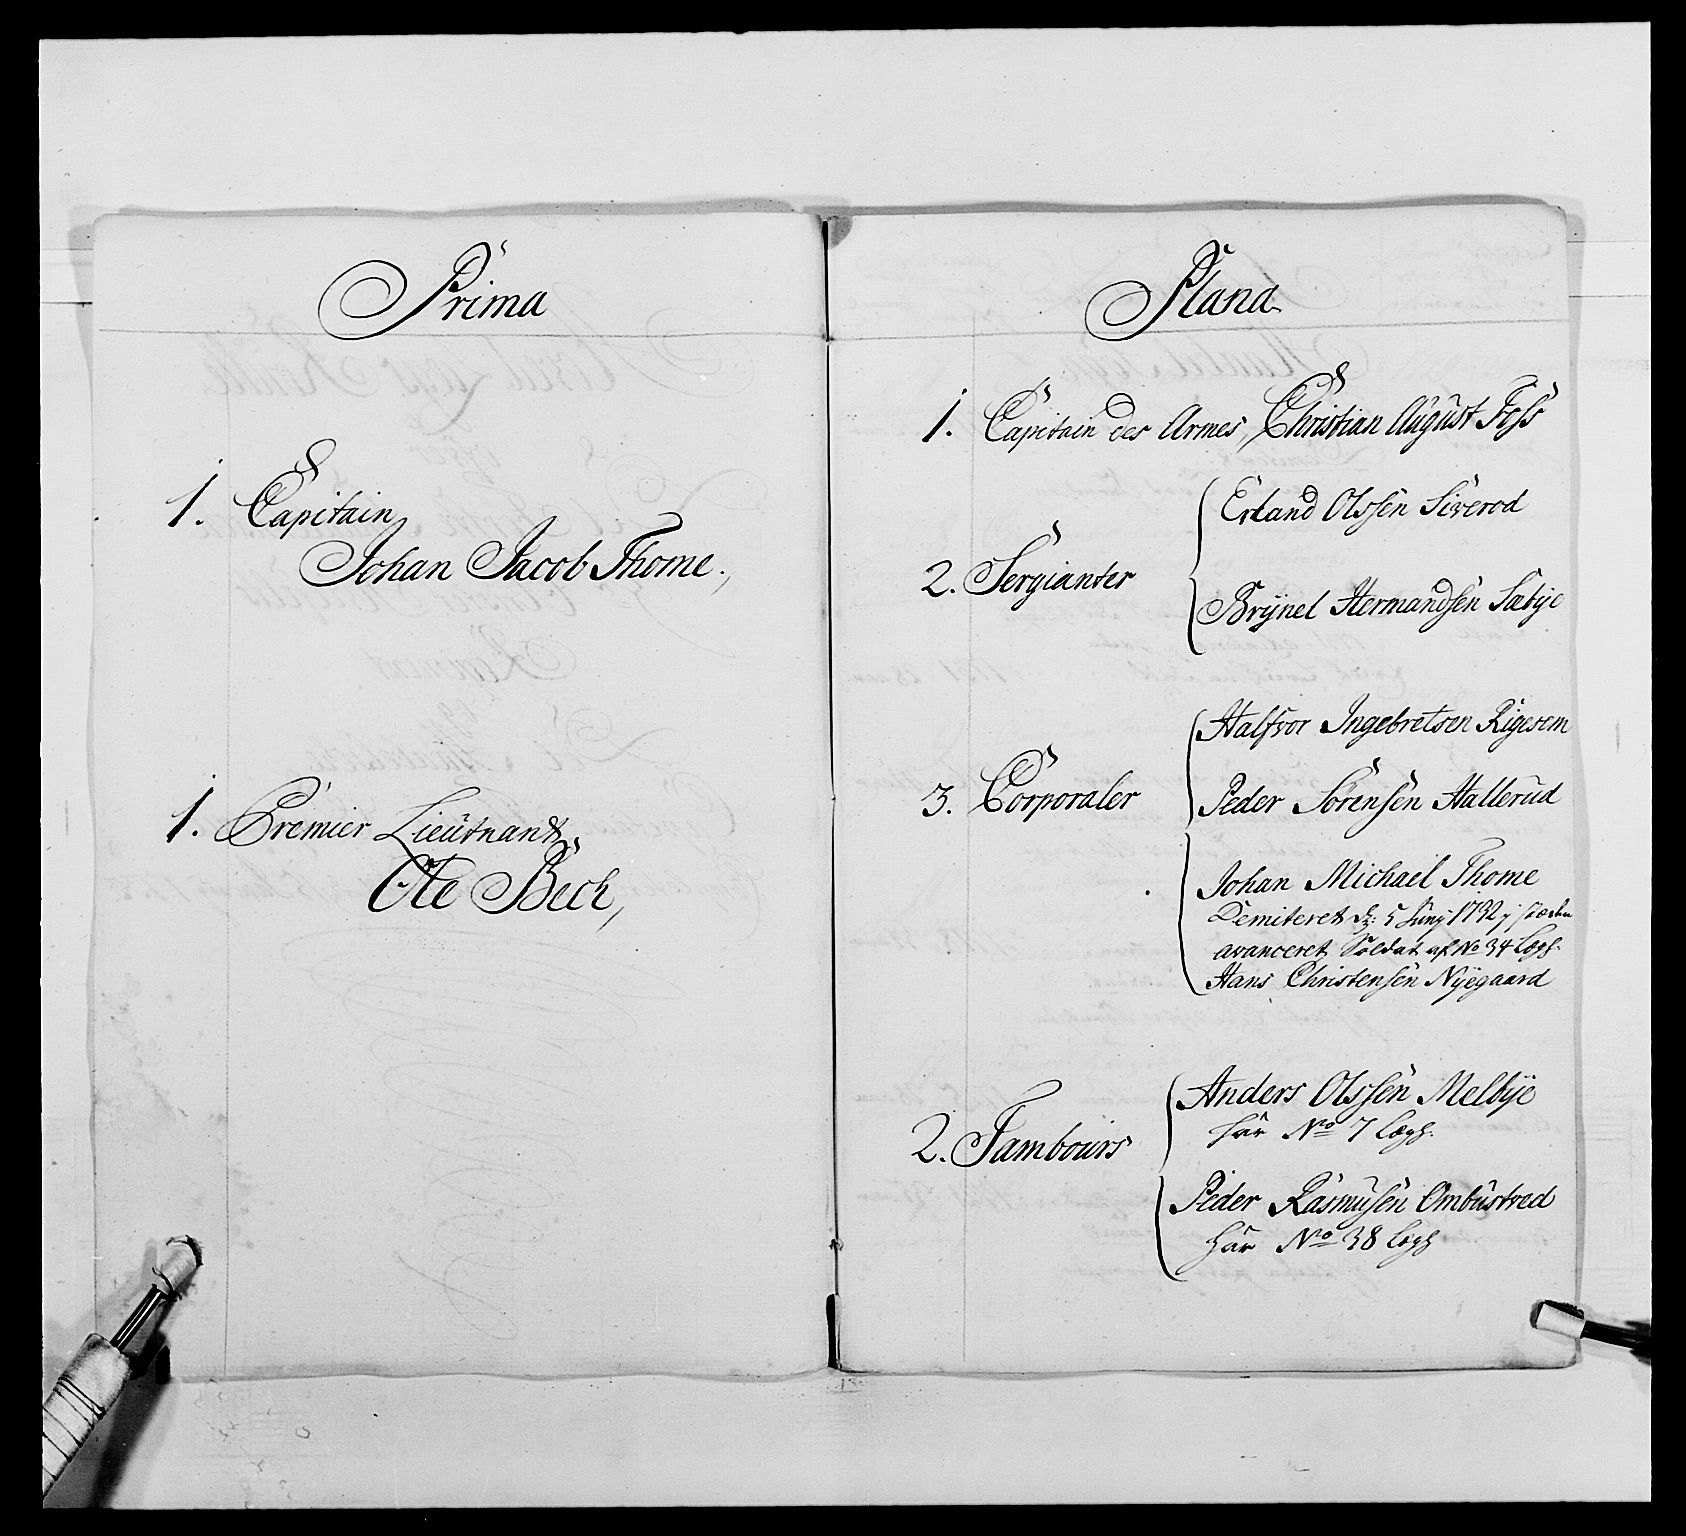 Prima
1. Capitain
Johan Jacob Thome.,
1. Premier Lieutnant
Ole Bech,
Plana
1. Capitain des Armes, Christian August Foss
2. Sergianter
Erland Olssen Siverod
Brÿnel Hermandsen Sæbye
3. Corporaler
Halfvor Ingebretsen Rigesem
Peder Sörensen Hallerud
Johan Michael Thome
Demiteret d: 5 Junÿ 1732 j steden
avanceret Soldat af No 34 Legh.
Hans Christensen Nÿegaard
2. Tambours
Anders Olssen Melbÿe
har No 7 Legh.
Peder Rasmusen Ombustved
har No 38 Legh